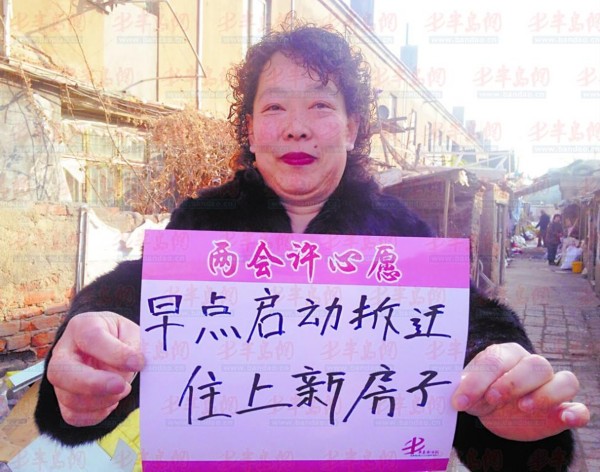 两会许心愿
早点启动拆迁
住上新房子
半岛网